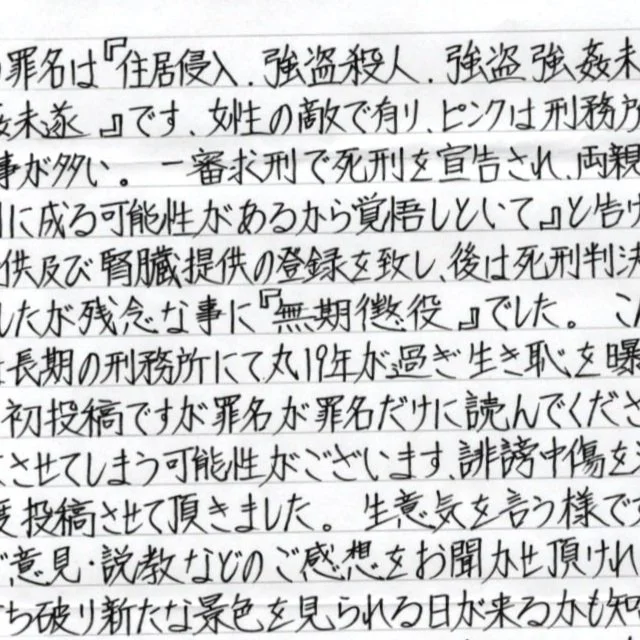 罪名は『住居侵入.強盗殺人.強盗強姦未
未遂』です、女性の敵で有り、ピンクは刑務所
事が多い。一審求刑で死刑を宣告され、両親
に成る可能性があるから覚悟しといて』と告げ
供及び腎臓提供の登録を致し、後は死刑判決
したが残念な事に『無期懲役』でした。こ
長期の刑務所にて丸19年が過ぎ生き恥を曝
初投稿ですが罪名が罪名だけに読んでくださ
させてしまう可能性がございます、誹謗中傷を
投稿させて頂きました。生意気を言う様です
意見・説教などのご感想をお聞かせ頂けれ
ち破り新たな景色を見られる日が来るかも知